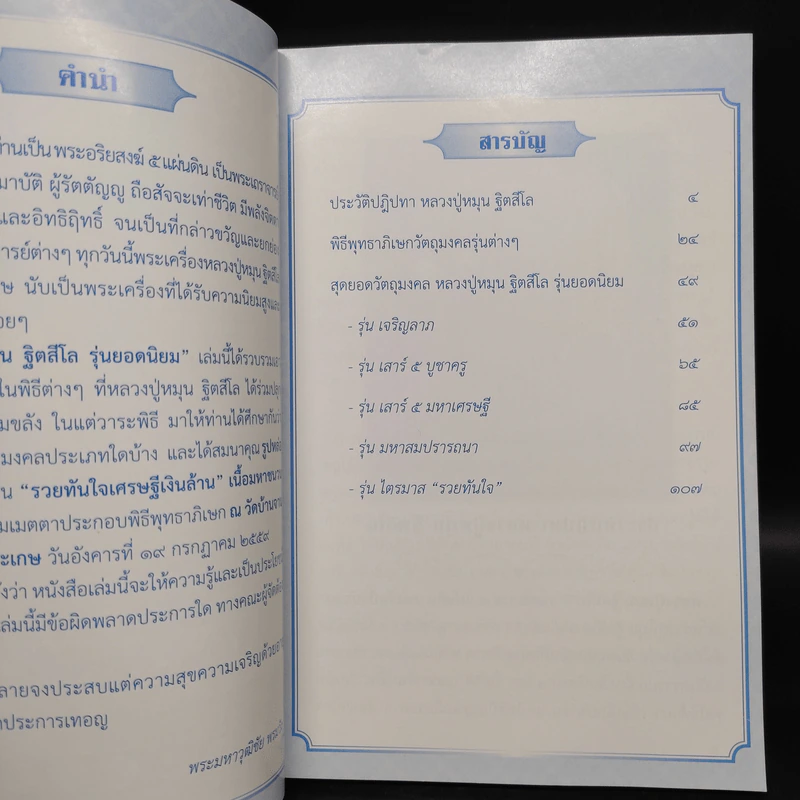 คำนำ
ท่านเป็น พระอริยสงฆ์ ๕ แผ่นดิน เป็นพระเถราจารย์
มาบัติ ผู้รัตตัญญู ถือสัจจะเท่าชีวิต มีพลังจิต
และอิทธิฤทธิ์ จนเป็นที่กล่าวขวัญและยกย่อง
ารย์ต่างๆ ทุกวันนี้พระเครื่องหลวงปู่หมุน ฐิตสีโล
ษ นับเป็นพระเครื่องที่ได้รับความนิยมสูงและ
อยๆ
น ฐิตสีโล รุ่นยอดนิยม” เล่มนี้ได้รวบรวม
ในพิธีต่างๆ ที่หลวงปู่หมุน ฐิตสีโล ได้ร่วม
มขลัง ในแต่วาระพิธี มาให้ท่านได้ศึกษากัน
มงคลประเภทใดบ้าง และได้สมนาคุณ
น “รวยทันใจเศรษฐีเงินล้าน” เนื้อมหาชนวน
มเมตตาประกอบพิธีพุทธาภิเษก ณ วัดบ้านจาน
ะเกษ วันอังคารที่ ๑๙ กรกฏาคม ๒๕๕๙
ังว่า หนังสือเล่มนี้จะให้ความรู้และเป็นประโยชน์
เล่มนี้มีข้อผิดพลาดประการใด ทางคณะผู้จัด
ลายจงประสบแต่ความสุขความเจริญด้วย
ประการเทอญ
พระมหาวุฒิชัย
สารบัญ
ประวัติปฏิปทา หลวงปู่หมุน ฐิตสีโล ๔
พิธีพุทธาภิเษกวัตถุมงคลรุ่นต่างๆ ๒๔
สุดยอดวัตถุมงคล หลวงปู่หมุน ฐิตสีโล รุ่นยอดนิยม ๔๙
- รุ่น เจริญลาภ ๕๑
- รุ่น เสาร์ ๕ บูชาครู ๖๕
- รุ่น เสาร์ ๕ มหาเศรษฐี ๘๕
- รุ่น มหาสมปรารถนา ๙๗
- รุ่น ไตรมาส “รวยทันใจ” ๑๐๗